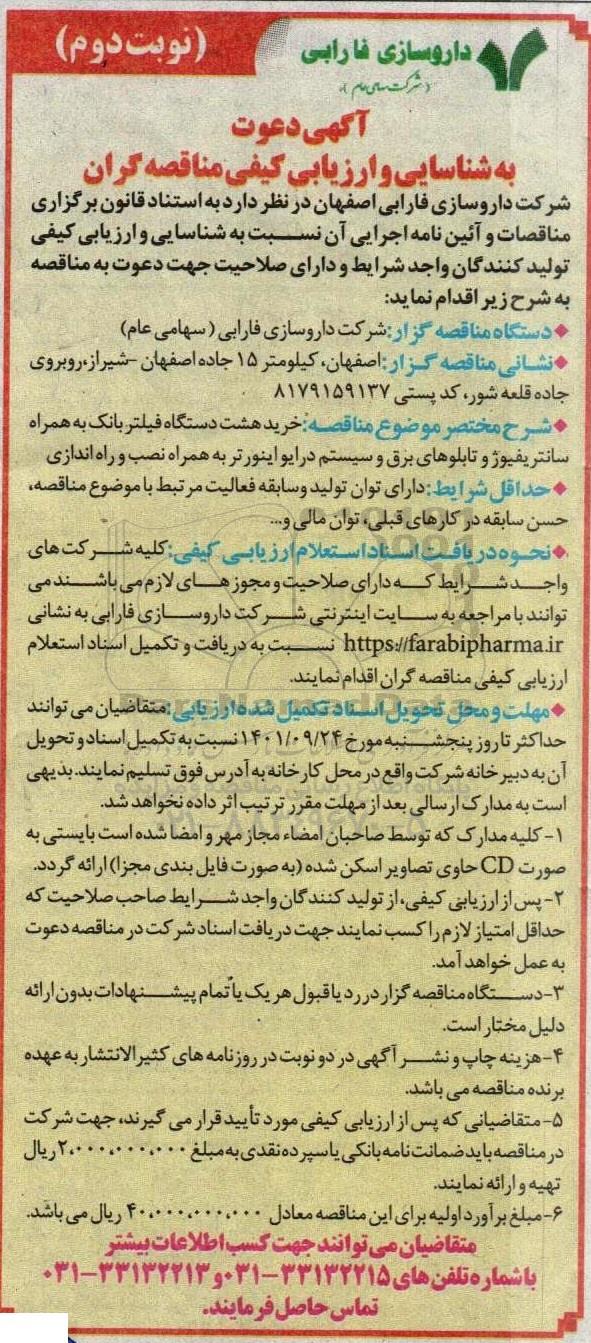 (نوبت دوم)
داروسازی فارابی
(شرکت سهامی عام)
آگهی دعوت
به شناسایی و ارزیابی کیفی مناقصه گران
شرکت داروسازی فارابی اصفهان در نظر دارد به استناد قانون برگزاری
مناقصات و آئین نامه اجرایی آن نسبت به شناسایی و ارزیابی کیفی
تولید کنندگان واجد شرایط و دارای صلاحیت جهت دعوت به مناقصه
به شرح زیر اقدام نماید:
◆دستگاه مناقصه گزار:شرکت داروسازی فارابی (سهامی عام)
◆نشانی مناقصه گزار:اصفهان، کیلومتر ۱۵ جاده اصفهان -شیراز،روبروی
جاده قلعه شور، کد پستی ۸۱۷۹۱۵۹۱۳۷
◆شرح مختصر موضوع مناقصه:خرید هشت دستگاه فیلتر بانک به همراه
سانتریفیوژ و تابلوهای برق و سیستم درایو اینورتر به همراه نصب و راه اندازی
◆حداقل شرایط:دارای توان تولید وسابقه فعالیت مرتبط با موضوع مناقصه،
حسن سابقه در کارهای قبلی، توان مالی و...
◆نحوه دریافت اسناد استعلام ارزیابی کیفی:کلیه شرکت های
واجد شرایط که دارای صلاحیت و مجوز های لازم می باشند می
توانند با مراجعه به سایت اینترنتی شرکت داروسازی فارابی به نشانی
https://farabipharma.ir نسبت به دریافت و تکمیل اسناد استعلام
ارزیابی کیفی مناقصه گران اقدام نمایند.
◆مهلت و محل تحویل اسناد تکمیل شده ارزیابی:متقاضیان می توانند
حداکثر تا روز پنجشنبه مورخ ۱۴۰۱/۰۹/۲۴ نسبت به تکمیل اسناد و تحویل
آن به دبیرخانه شرکت واقع در محل کارخانه به آدرس فوق تسلیم نمایند.بدیهی
است به مدارک ارسالی بعد از مهلت مقرر ترتیب اثر داده نخواهد شد.
۱- کلیه مدارک که توسط صاحبان امضاء مجاز مهر و امضا شده است بایستی به
صورت CD حاوی تصاویر اسکن شده (به صورت فایل بندی مجزا) ارائه گردد.
۲- پس از ارزیابی کیفی، از تولید کنندگان واجد شرایط صاحب صلاحیت که
حداقل امتیاز لازم را کسب نمایند جهت دریافت اسناد شرکت در مناقصه دعوت
به عمل خواهد آمد.
۳-دستگاه مناقصه گزار در رد یا قبول هر یک یا تمام پیشنهادات بدون ارائه
دلیل مختار است.
۴-هزینه چاپ و نشر آگهی در دو نوبت در روزنامه های کثیرالانتشار به عهده
برنده مناقصه می باشد.
۵-متقاضیانی که پس از ارزیابی کیفی مورد تأیید قرار می گیرند، جهت شرکت
در مناقصه باید ضمانت نامه بانکی یا سپرده نقدی به مبلغ ۲،۰۰۰،۰۰۰،۰۰۰ ریال
تهیه و ارائه نمایند.
۶-مبلغ برآورد اولیه برای این مناقصه معادل ۴۰،۰۰۰،۰۰۰،۰۰۰ ریال می باشد.
متقاضیان می توانند جهت کسب اطلاعات بیشتر
با شماره تلفن های ۳۳۱۳۲۲۱۵-۰۳۱ و ۳۳۱۳۲۲۱۳-۰۳۱
تماس حاصل فرمایند.